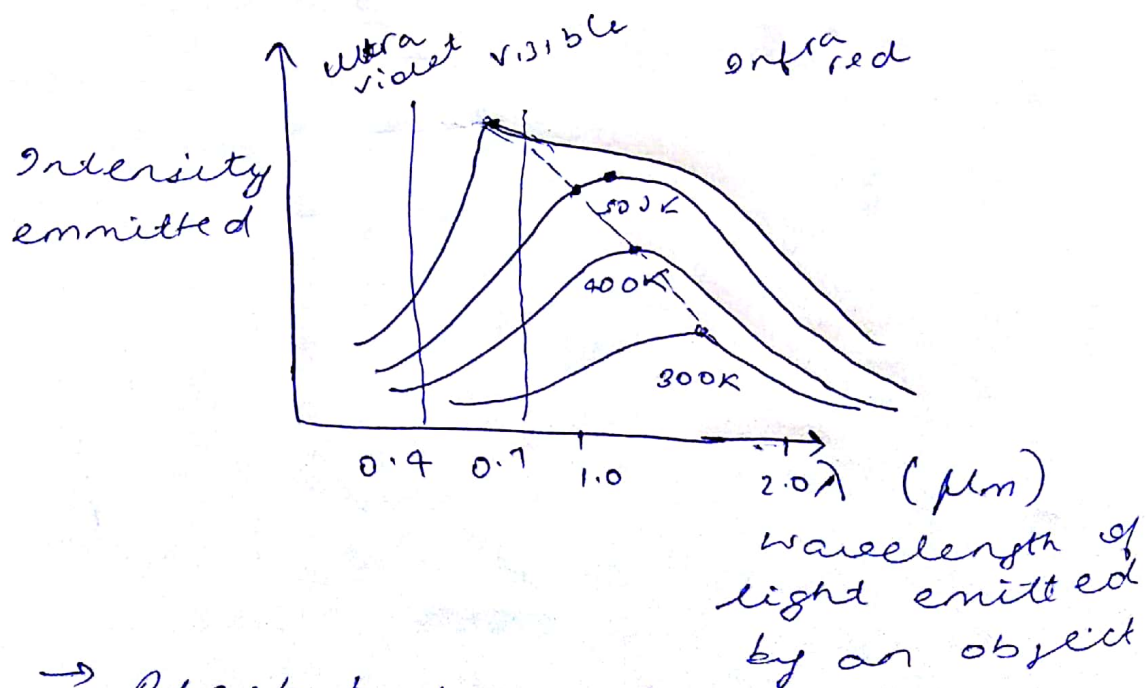 ultra violet visible
Infra red
Intensity
emmitted
500K
400K
300K
0.4 0.7 1.0 2.0 λ (μm)
wavelength of
light emitted
by an object
→